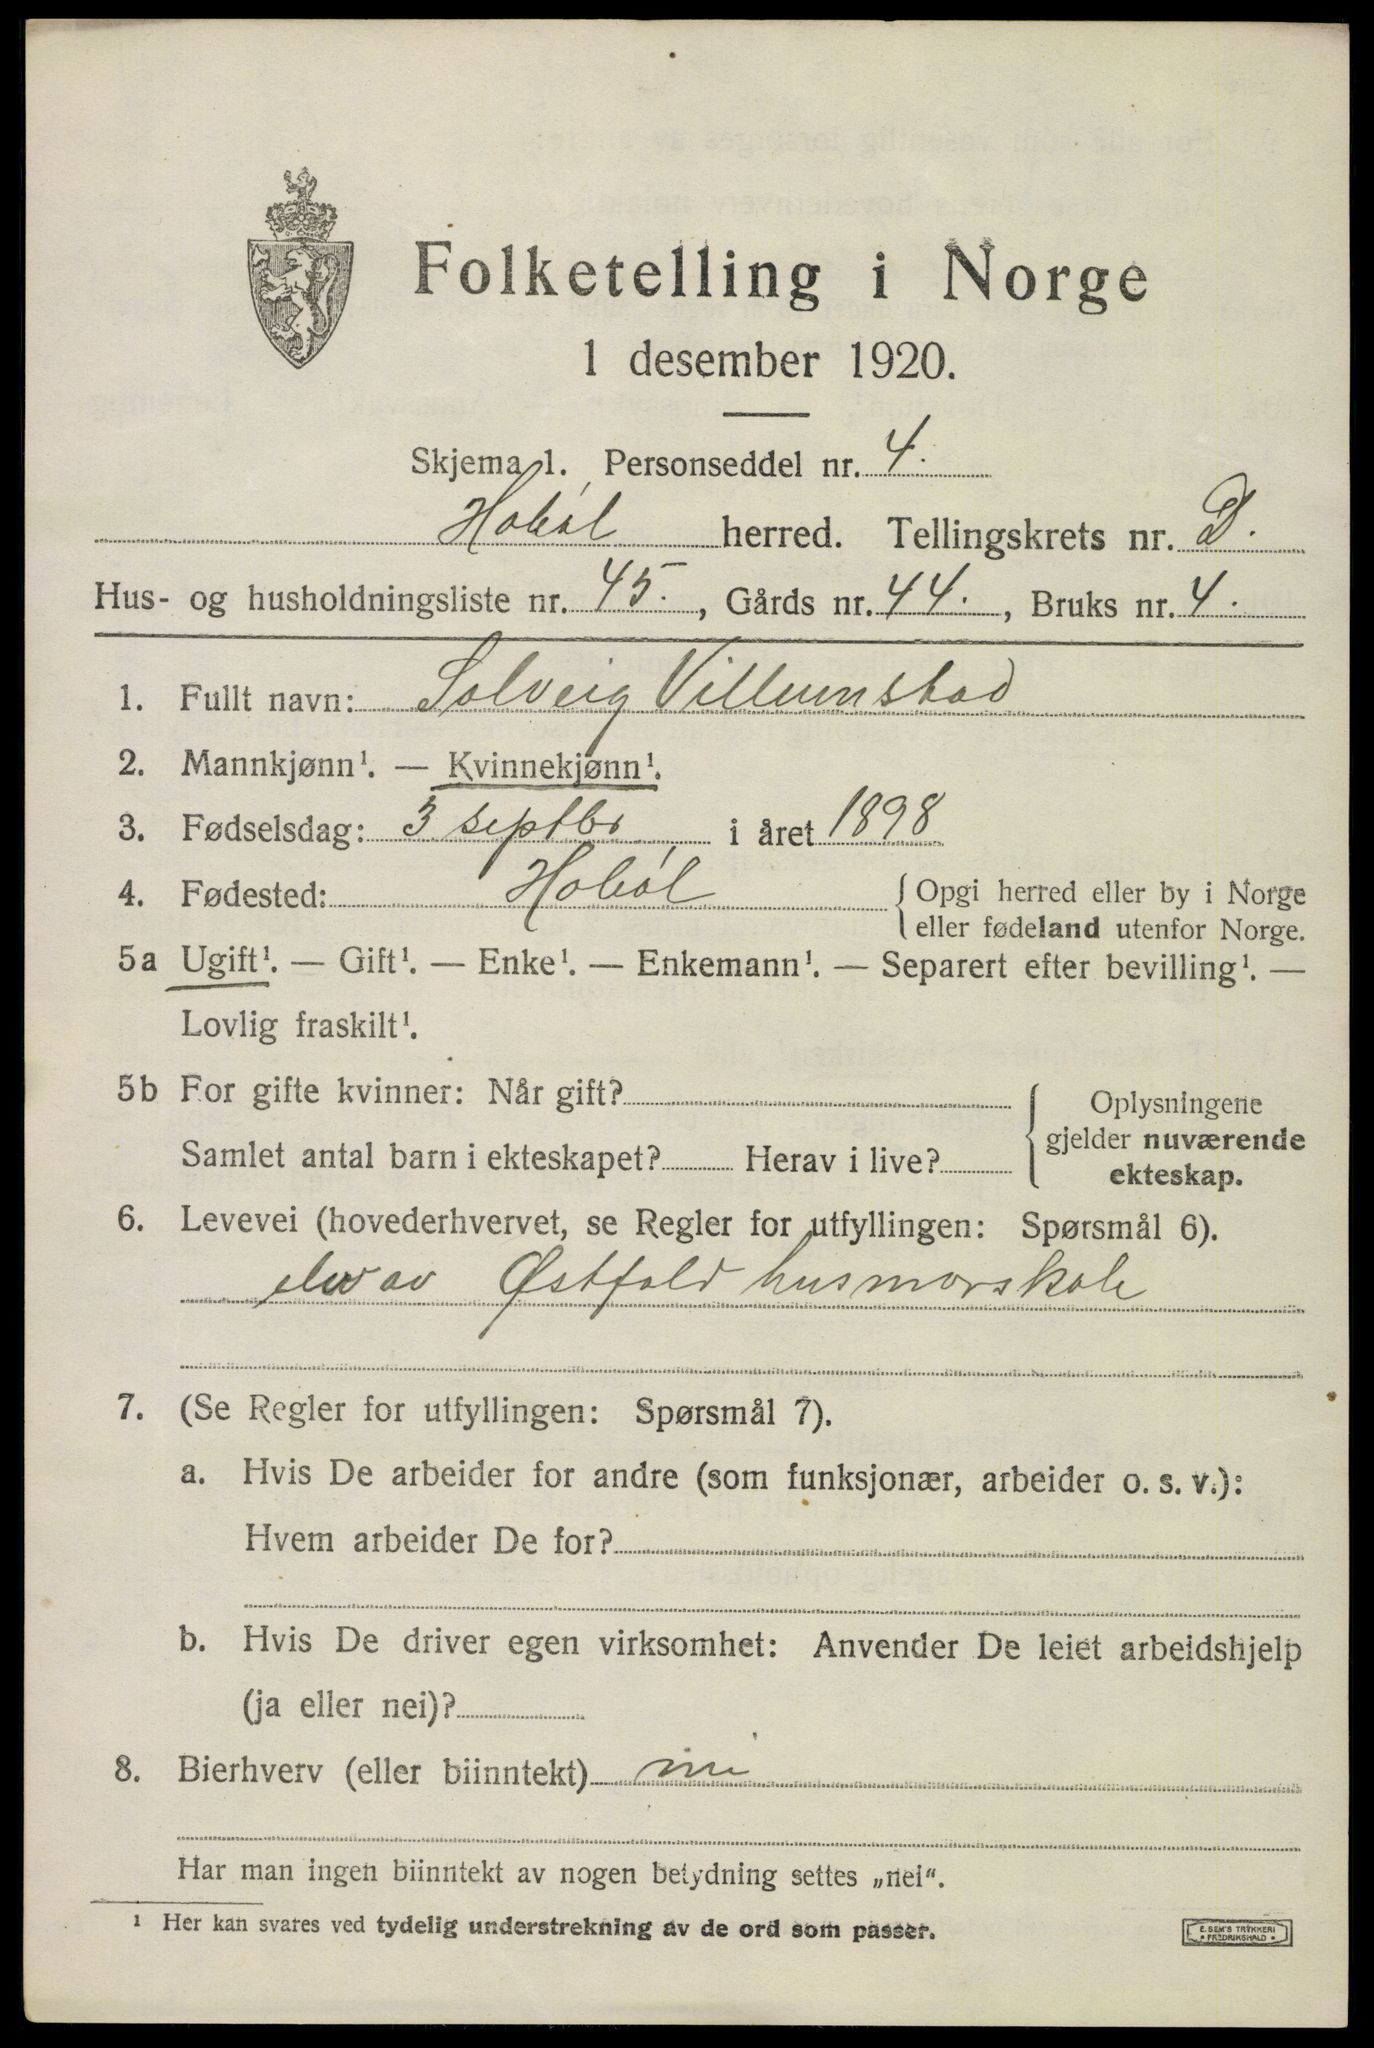 Folketelling i Norge
1 desember 1920.
Skjema 1. Personseddel nr. 4.
Hobøl herred. Tellingskrets nr. D.
Hus- og husholdningsliste nr. 45., Gårds nr. 44., Bruks nr. 4.
1. Fullt navn: Solveig Villumstad
2. Mannkjønn¹. — Kvinnekjønn¹.
3. Fødselsdag: 3 septbr i året 1898
4. Fødested: Hobøl { Opgi herred eller by i Norge
eller fødeland utenfor Norge.
5a Ugift¹. — Gift¹. — Enke¹. — Enkemann¹. — Separert efter bevilling¹. —
Lovlig fraskilt¹.
5b For gifte kvinner: Når gift?
Samlet antal barn i ekteskapet? Herav i live?
Oplysningene
gjelder nuværende
ekteskap.
6. Levevei (hovederhvervet, se Regler for utfyllingen: Spørsmål 6).
elev av Østfold husmorskole
7. (Se Regler for utfyllingen: Spørsmål 7).
a. Hvis De arbeider for andre (som funksjonær, arbeider o. s. v.):
Hvem arbeider De for?
b. Hvis De driver egen virksomhet: Anvender De leiet arbeidshjelp
(ja eller nei)?
8. Bierhverv (eller biinntekt) nei
Har man ingen biinntekt av nogen betydning settes „nei“.
¹ Her kan svares ved tydelig understrekning av de ord som passer.
E. SEM'S TRYKKERI
• FREDRIKSHALD •